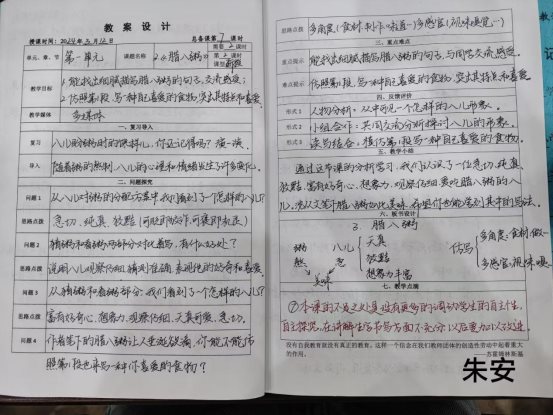 教案设计
授课时间:2024年3月12日 总备课第7课时
单元、章、节 第一单元 课题名称 2《腊八粥》 需要2课时 第2课时
教学目标
1.能找出细腻描写腊八粥的句子,交流感受;
2.仿照第1段,写一种自己喜爱的食物,突出其特点和喜爱。
教学媒体 多媒体
一、复习导入
复习 八儿盼粥时的馋样儿,你还记得吗?演一演。
导入 随着粥的熬制,八儿的心理和情绪发生了许多变化。
二、问题探究
问题1 从八儿对粥的分配方案中我们看到了一个怎样的八儿?
思路点拨 急切、纯真、狡黠
问题2 猜粥和看粥两部分对比着写,有什么好处?
思路点拨 说明八儿观察仔细,猜测准确,表现他的好奇和喜爱。
问题3 从猜粥和看粥部分,我们看到了一个怎样的八儿?
思路点拨 富有好奇心、想象力、观察仔细、天真可爱、急切。
问题4 作者笔下的腊八粥让人垂涎欲滴,你能不能仿
照第1段也来写一种你喜爱的食物?
思路点拨 多角度(食材、制作、味道…)多感官(视、味、嗅觉…)
三、重点难点
重点提示 能找出细腻描写腊八粥的句子,与同学交流感受。
难点提示 仿照第1段,写一种自己喜爱的食物,突出其特点和喜爱。
四、反馈评价
形式1 人物分析:从中可见一个怎样的八儿形象。
形式2 小组合作:共同交流分析探讨八儿的形象。
形式3 读写结合:模仿第1段写一种自己喜爱的食物。
五、教学小结
通过这节课的分析学习,我们认识了一位急切、纯真、
狡黠、富有好奇心、想象力、观察仔细、爱吃腊八粥的八
儿,沈从文笔下腊八粥如此美味,希望你也能学到其中的写法。
六、板书设计
2.腊八粥
粥 八儿 天真 仿写 多角度:食材、做…
熬 急 狡黠 多感官:视、味、嗅…
美味 想象力丰富
七、教学点滴
①本课的不足之处是没有更好的调动学生的自主性,
自主探究,在讲解生字书写方面不充分,以后要加以改进。
没有自我教育就没有真正的教育。这样一个信念在我们教师团体的创造性劳动中起着重大
的作用。 ——苏霍姆林斯基
朱安